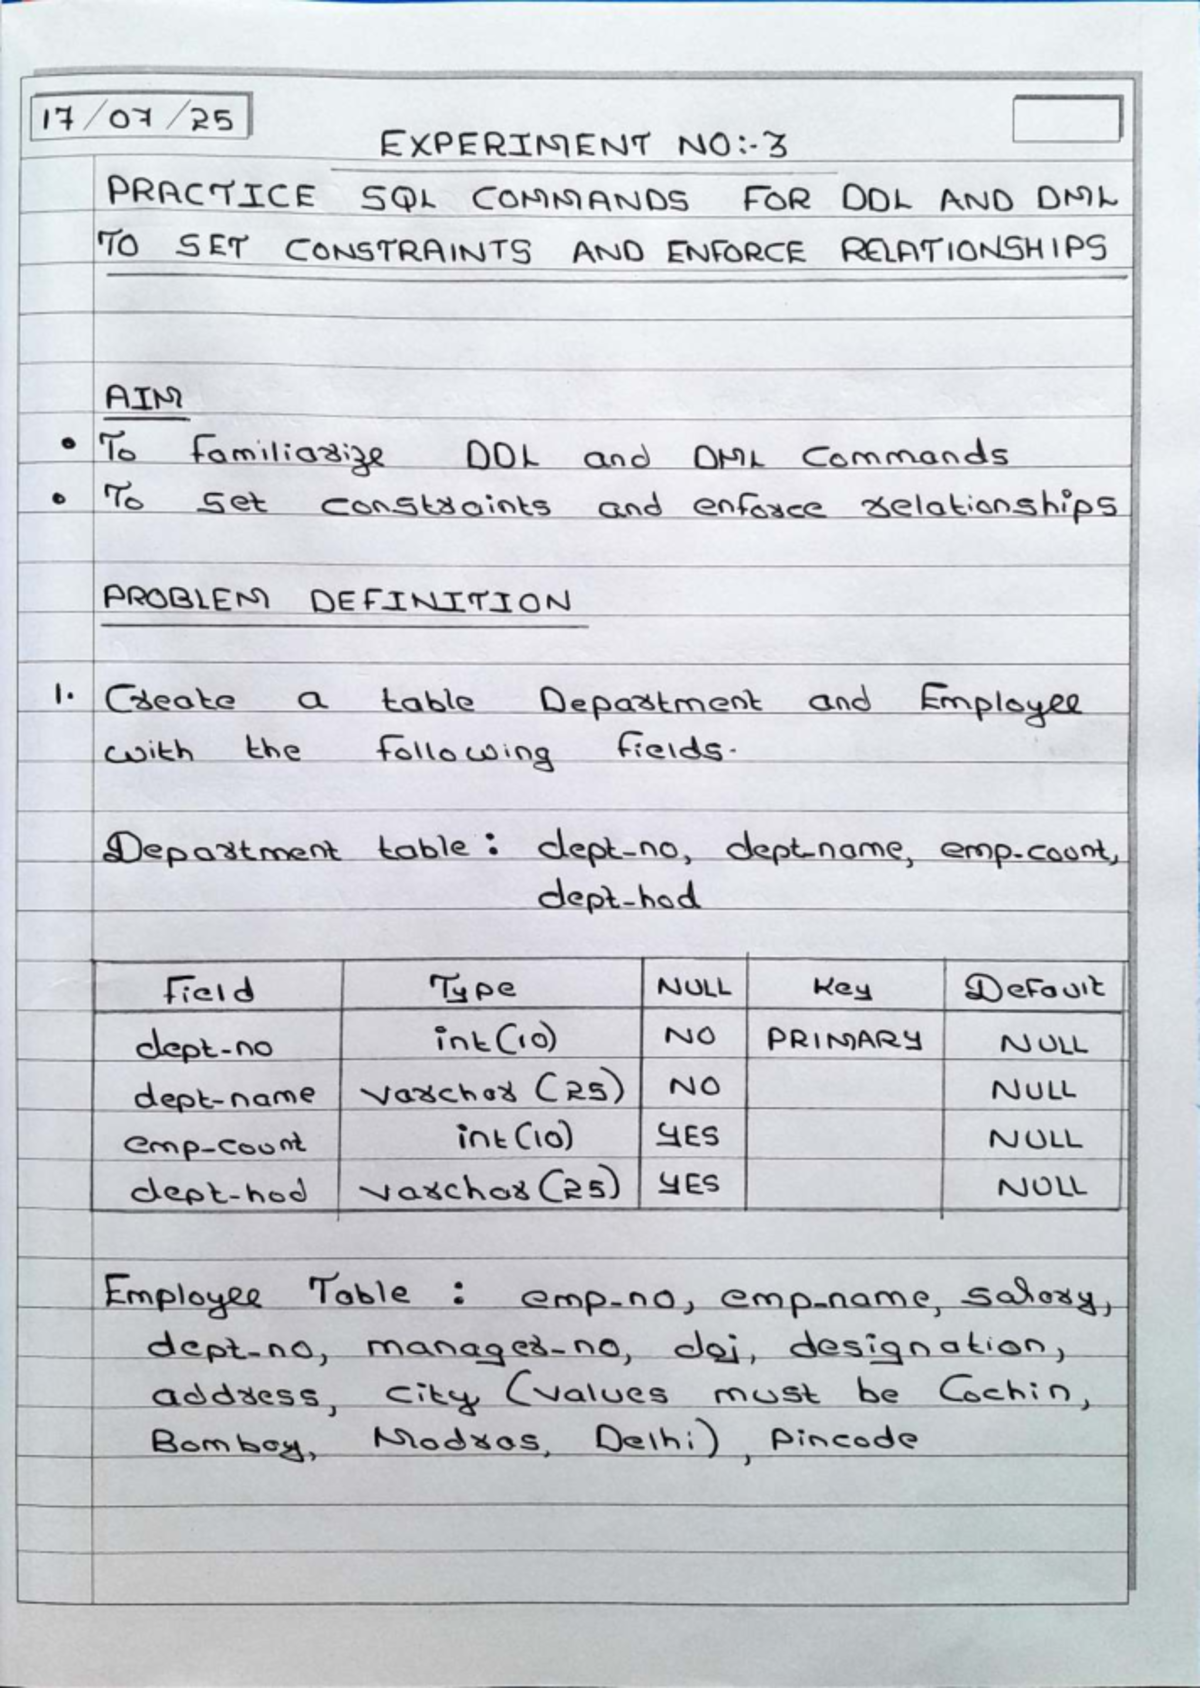 17/07/25
EXPERIMENT NO:-3
PRACTICE SQL COMMANDS FOR DDL AND DML
TO SET CONSTRAINTS AND ENFORCE RELATIONSHIPS
AIM
• To familiarize DDL and DML Commands
• To set constraints and enforce relationships
PROBLEM DEFINITION
1. Create a table Department and Employee
with the following fields.
Department table: dept-no, dept-name, emp-count,
dept-hod
Field Type NULL Key Default
dept-no int(10) NO PRIMARY NULL
dept-name varchar (25) NO NULL
emp-count int(10) YES NULL
dept-hod varchar(25) YES NULL
Employee Table : emp-no, emp-name, salary,
dept-no, manager-no, doj, designation,
address, city (values must be Cochin,
Bombay, Madras, Delhi), pincode